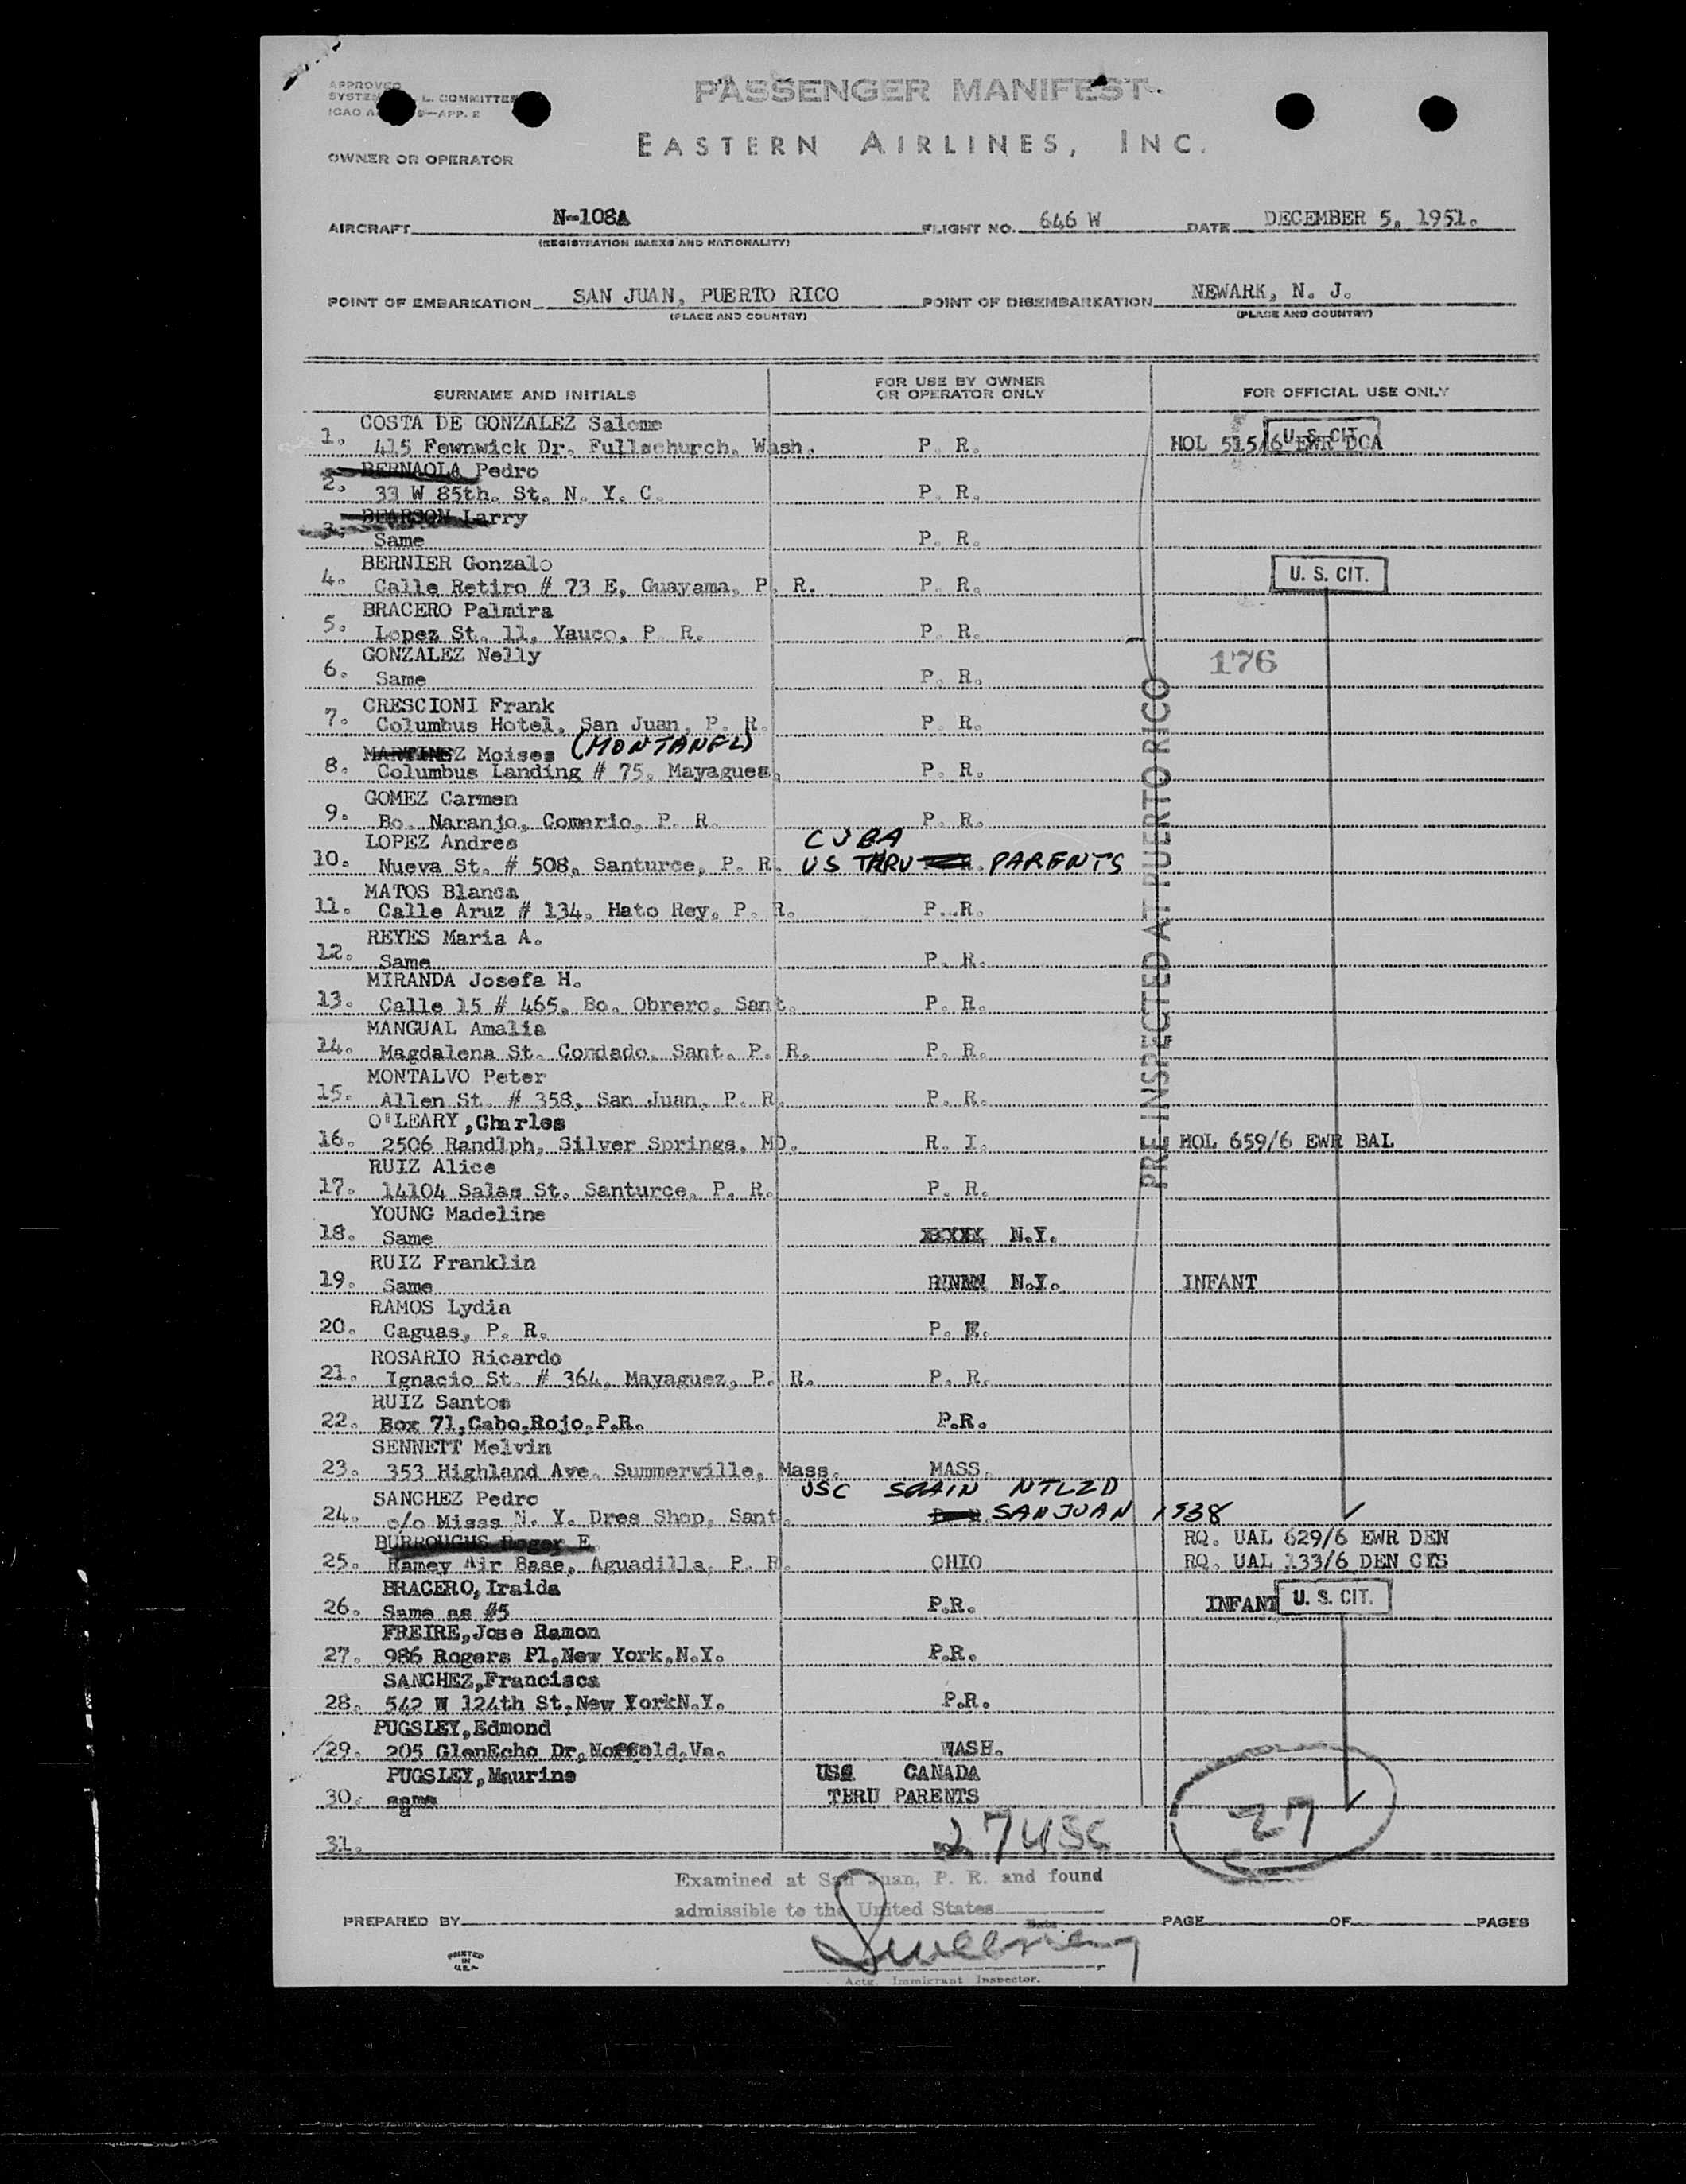 PASSENGER MANIFEST
APPROVED
L. COMMITTEE
ICAO 9—APP. 2
EASTERN AIRLINES, INC.
OWNER OR OPERATOR
AIRCRAFT N-108A FLIGHT NO. 646 W DATE DECEMBER 5, 1951.
(REGISTRATION MARKS AND NATIONALITY)
POINT OF EMBARKATION SAN JUAN, PUERTO RICO POINT OF DISEMBARKATION NEWARK, N. J.
(PLACE AND COUNTRY) (PLACE AND COUNTRY)
SURNAME AND INITIALS FOR USE BY OWNER OR OPERATOR ONLY FOR OFFICIAL USE ONLY
COSTA DE GONZALEZ Salome
1. 415 Fewnwick Dr. Fullschurch, Wash. P. R. HOL 515/6 EWR DCA U. S. CIT.
BERNAOLA Pedro
2. 33 W 85th. St. N. Y. C. P. R.
BEARSON Larry
3. Same P. R.
BERNIER Gonzalo
4. Calle Retiro # 73 E, Guayama, P. R. P. R. U. S. CIT.
BRACERO Palmira
5. Lopez St. 11, Yauco, P. R. P. R.
GONZALEZ Nelly
6. Same P. R. 176
CRESCIONI Frank
7. Columbus Hotel, San Juan, P. R. P. R.
MARTINEZ Moises (MONTANEZ)
8. Columbus Landing # 75, Mayaguez, P. R.
GOMEZ Carmen
9. Bo. Naranjo, Comerio, P. R. P. R.
LOPEZ Andres CUBA
10. Nueva St. # 508, Santurce, P. R. US THRU PARENTS
MATOS Blanca
11. Calle Aruz # 134, Hato Rey, P. R. P. R.
REYES Maria A.
12. Same P. R.
MIRANDA Josefa H.
13. Calle 15 # 465, Bo. Obrero, Sant. P. R.
MANGUAL Amalia
14. Magdalena St. Condado, Sant. P. R. P. R.
MONTALVO Peter
15. Allen St. # 358, San Juan, P. R. P. R.
O'LEARY,Charles
16. 2506 Randlph, Silver Springs, MD. R. I. HOL 659/6 EWR BAL
RUIZ Alice
17. 14104 Salas St. Santurce, P. R. P. R.
YOUNG Madeline
18. Same N.Y.
RUIZ Franklin
19. Same N.Y. INFANT
RAMOS Lydia
20. Caguas, P. R. P. R.
ROSARIO Ricardo
21. Ignacio St. # 364, Mayaguez, P. R. P. R.
RUIZ Santos
22. Box 71,Cabo,Rojo,P.R. P.R.
SENNETT Melvin
23. 353 Highland Ave. Summerville, Mass. MASS.
SANCHEZ Pedro USC SPAIN NTLZD
24. c/o Misss N. Y. Dres Shop, Sant. SAN JUAN 1938
BURROUGHS Roger E. RQ. UAL 629/6 EWR DEN
25. Ramey Air Base, Aguadilla, P. R. OHIO RQ. UAL 133/6 DEN CYS
BRACERO,Iraida
26. Same as #5 P.R. INFANT U. S. CIT.
FREIRE,Jose Ramon
27. 986 Rogers Pl,New York,N.Y. P.R.
SANCHEZ,Francisca
28. 542 W 124th St,New YorkN.Y. P.R.
PUGSLEY,Edmond
29. 205 GlenEcho Dr,Norfold,Va. WASH.
PUGSLEY,Maurine USC CANADA
30. same THRU PARENTS
31. 27 USC 27
PRE INSPECTED AT PUERTO RICO
Examined at San Juan, P. R. and found
admissible to the United States
Date
PREPARED BY PAGE OF PAGES
PRINTED
IN
U.S.A.
Actg. Immigrant Inspector.